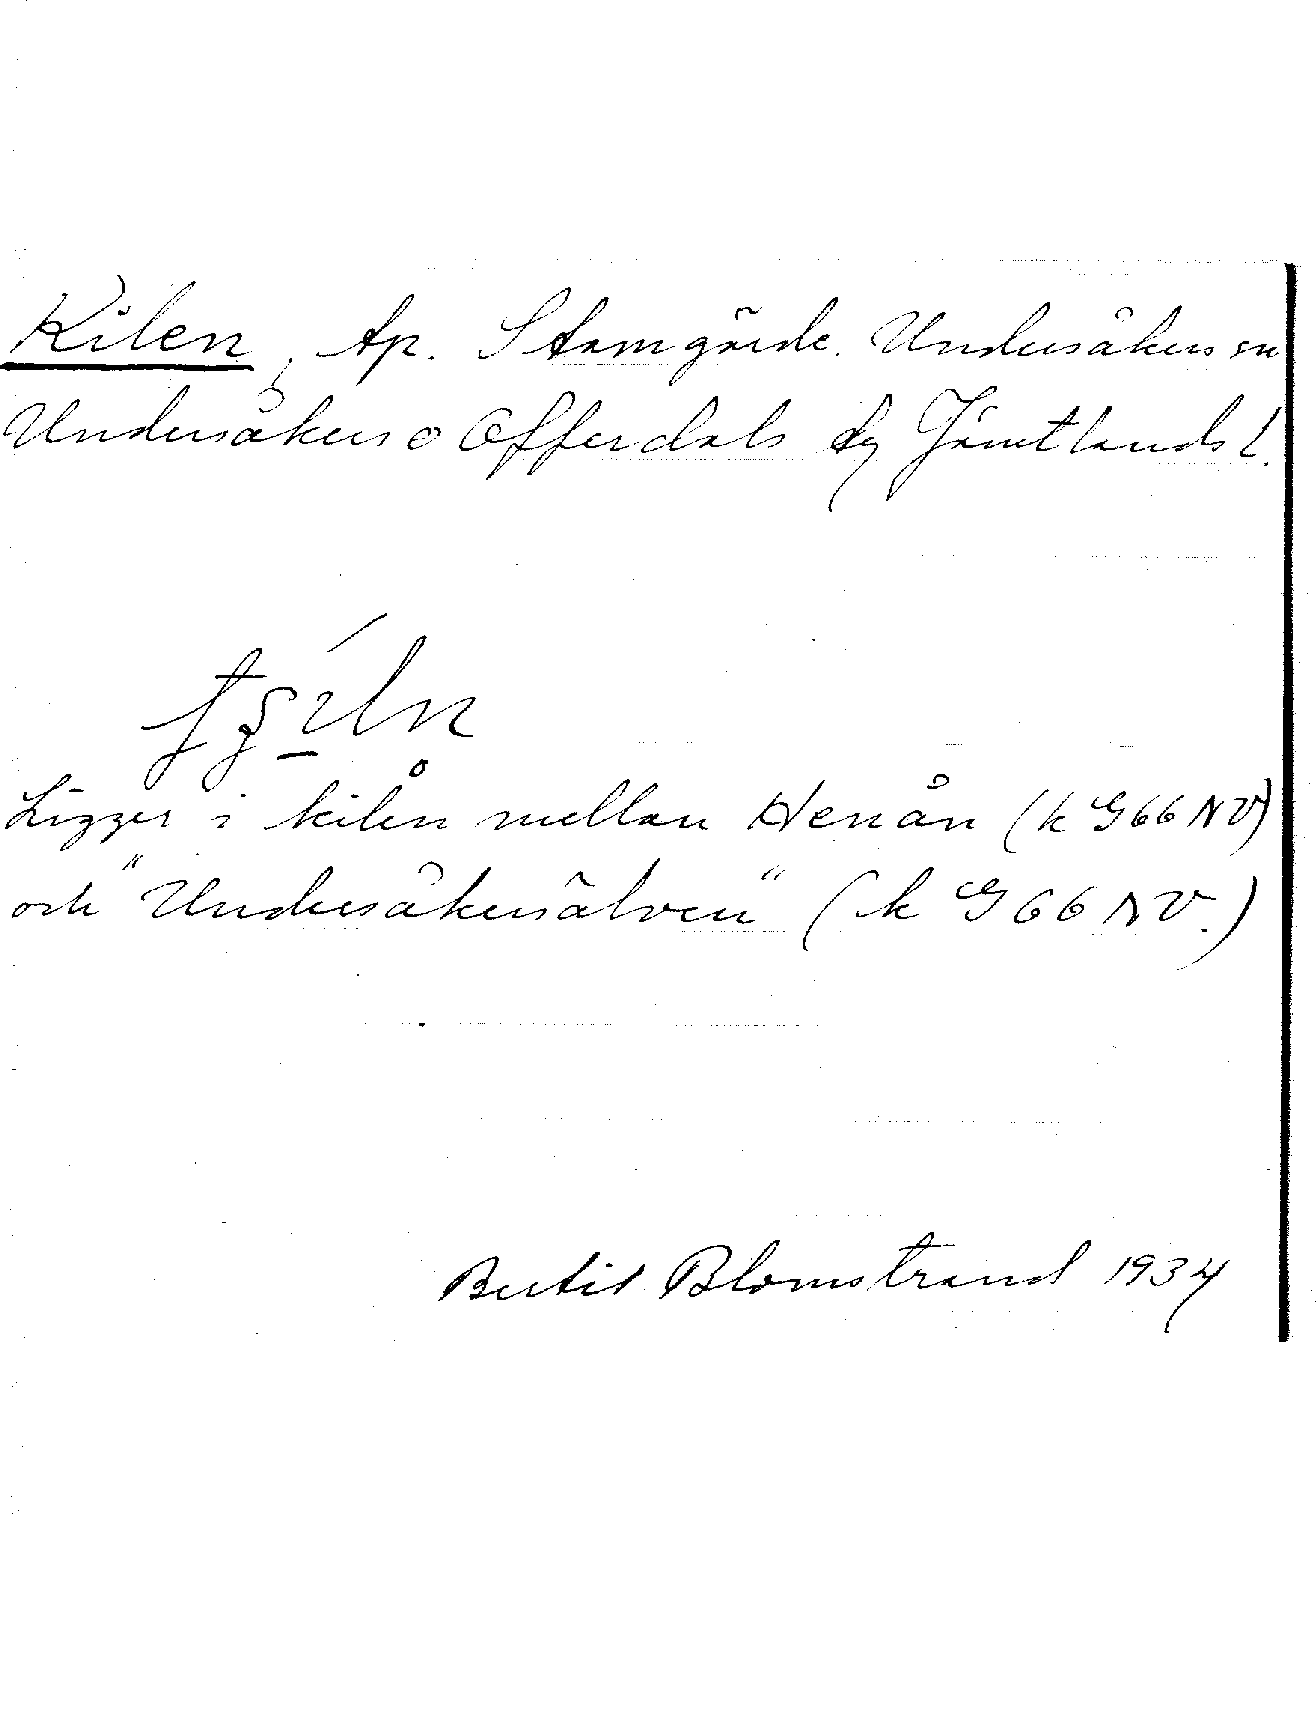 Kilen, tp. Stamgärde. Undersåkers sn
Undersåkers o Offerdals tg Jämtlands l.
Ligger i kilen mellan Henån (k G 66 NV)
och "Undersåkersälven" (k G 66 NV.)
Bertil Blomstrand 1934